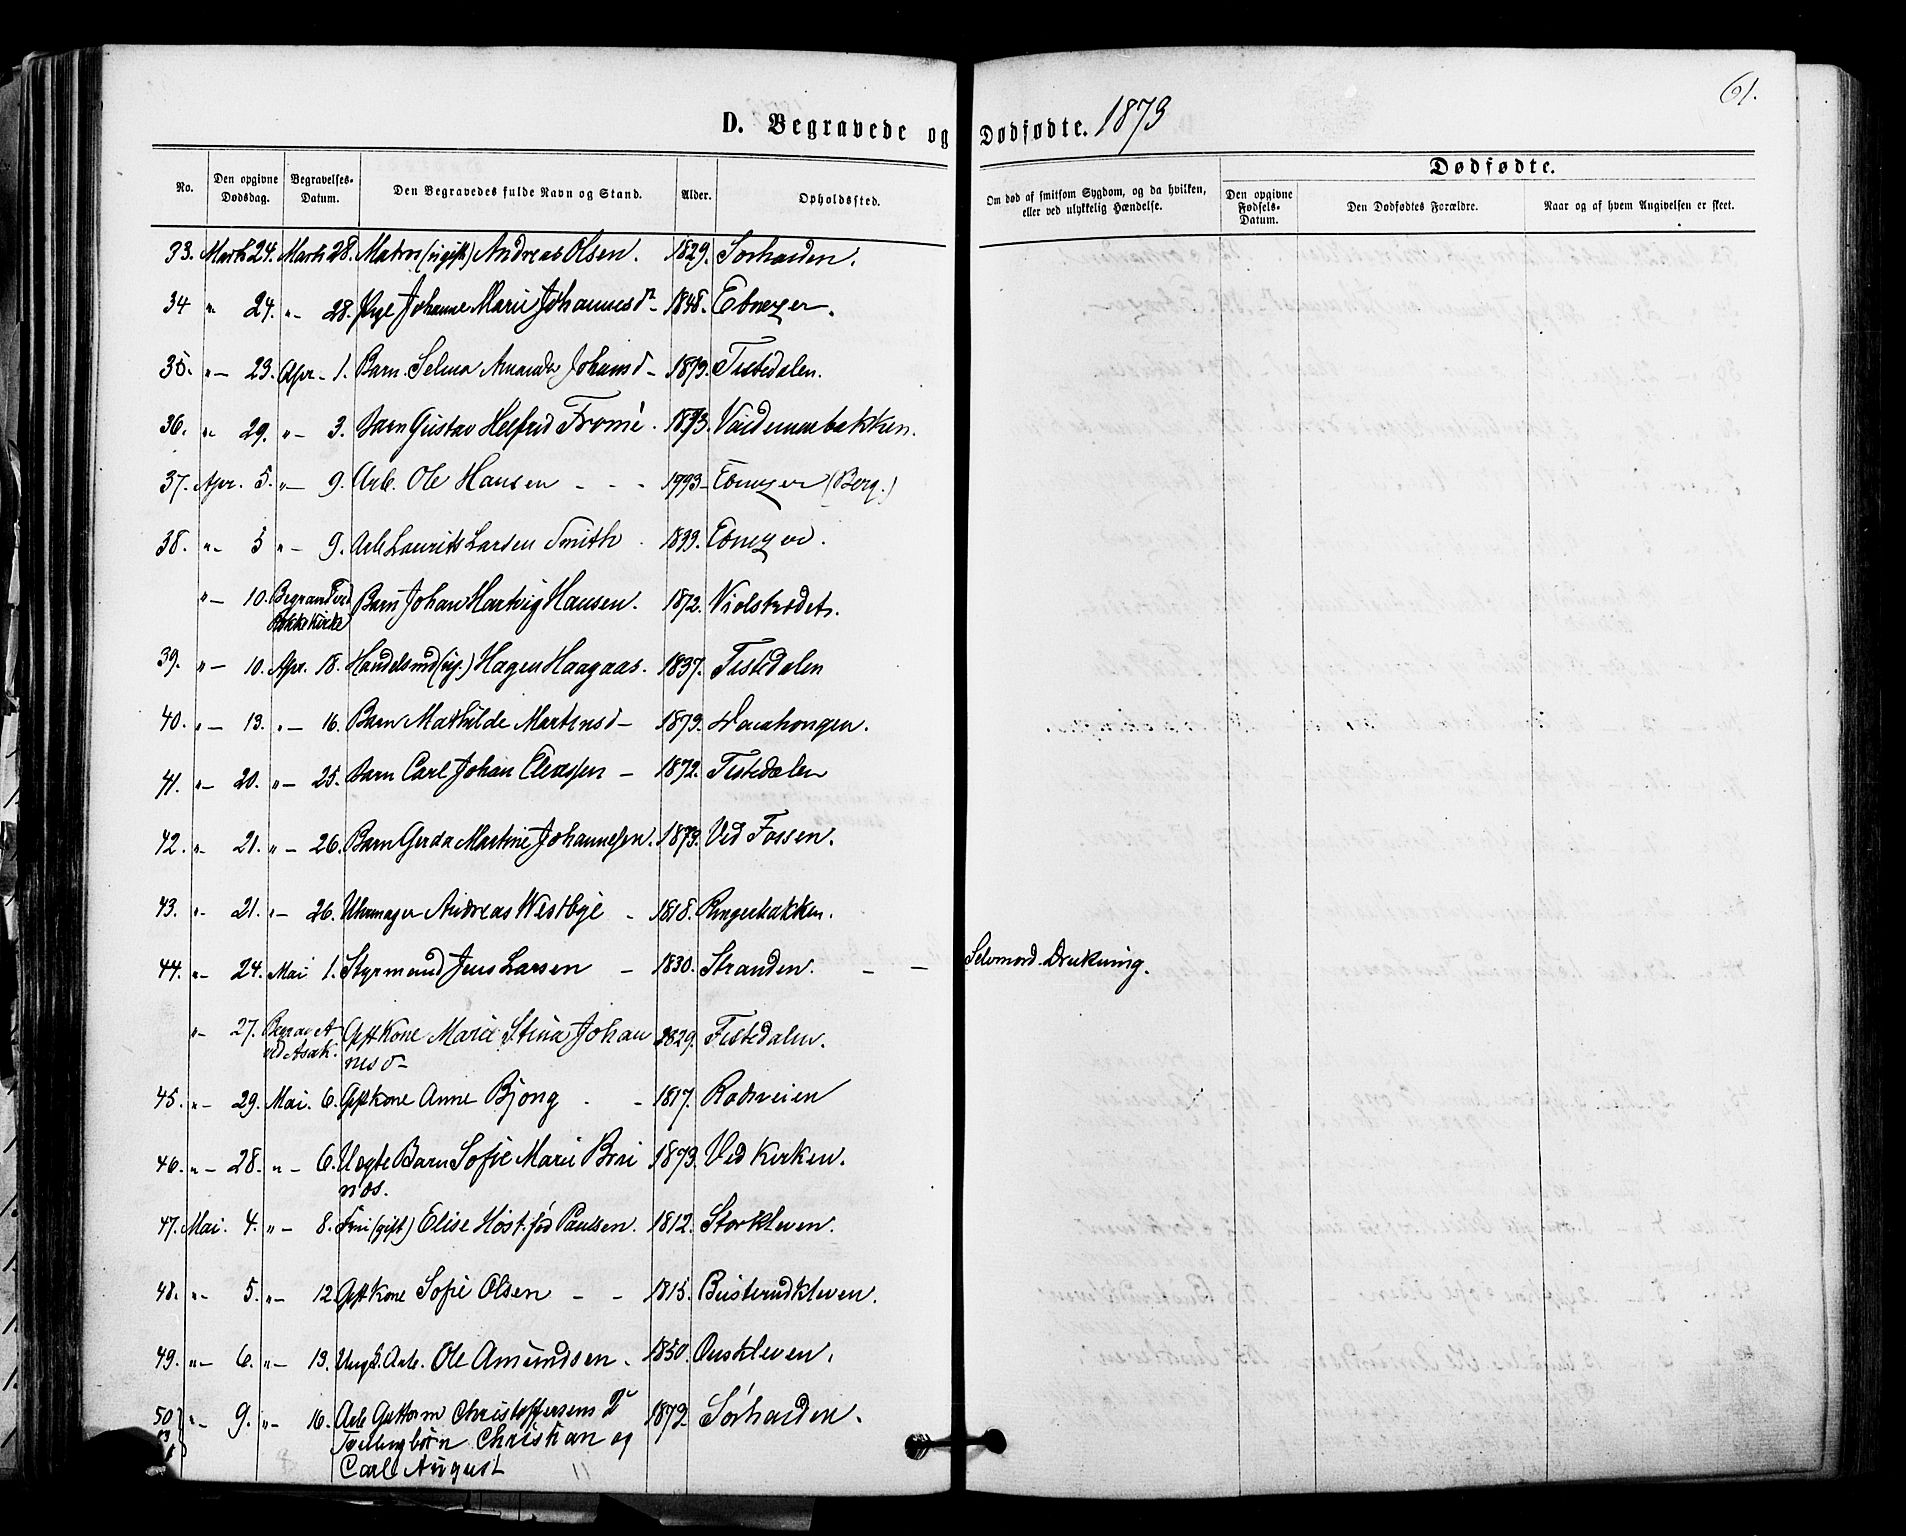 61.
D. Begravede og Dødfødte. 1873
No. Den opgivne Dødsdag. Begravelses-Datum. Den Begravedes fulde Navn og Stand. Alder. Opholdssted. Om død af smitsom Sygdom, og da hvilken, eller ved ulykkelig Hændelse. Dødfødte. Den opgivne Fødsels-Datum. Den Dødfødtes Forældre. Naar og af hvem Angivelsen er skeet.
33. Marts 24. Marts 28. Matros (ugift) Andreas Olsen. 1829. Sørhalden.
34 " 24. " 28. Pige Johanne Marie Johannesdr 1848. Ebnezer.
35. " 23. Apr. 1. Barn Selma Amanda Johansd 1873. Tistedalen.
36. " 29. " 3. Barn Gustav Helfrid Fromé. 1873. Vaidemarbakken.
37. Apr. 5. " 9. Arb. Ole Hansen 1793 Ebnezer (Berg.)
38. " 5 " 9. Arb Laurits Larsen Smith 1833. Ebnezer.
" 10. Begravet ved Kirke Barn Johan Hartvig Hansen. 1872. Violstrædet.
39. " 10. Apr. 18. Handelsmd (ug.) Hagen Haagaas. 1837. Tistedalen
40. " 13. " 16. Barn Mathilde Martinsd 1873.
41. " 20. " 25. Barn Carl Johan 1872. Tistedalen
42. " 21. " 26. Barn Gerda Martine Johannessen. 1873. Ved Fossen.
43. " 21. " 26. Uhrmager Andreas Westbye 1818. Ringerbakken.
44. " 24. Mai 1. Styrmand Jens Larsen 1830. Stranden. Selvmord. Drukning.
" 27. Begravet ved Asak. Gft Kone Marie Stina Johan
nesd 1829. Tistedalen.
45. " 29. Mai. 6. Gft Kone Anne Bjong 1817. Rødsveien
46. " 28. " 6. Uægte Barn Sofie Marie Bru
næs. 1873. Ved Kirken.
47. Mai. 4. " 8. Fru (gift) Elise Høst fød Paulsen. 1812. Storkleven.
48. " 5. " 12. Gft Kone Sofie Olsen 1815. Busterudkleven.
49. " 6. " 13. Ungk. Arb. Ole Amundsen 1850. Ouskleven.
50 " 9. " 16. Arb Guttorm Christoffersens 2
Tvillingbørn Christian og
Carl August 1872 Sørhalden.